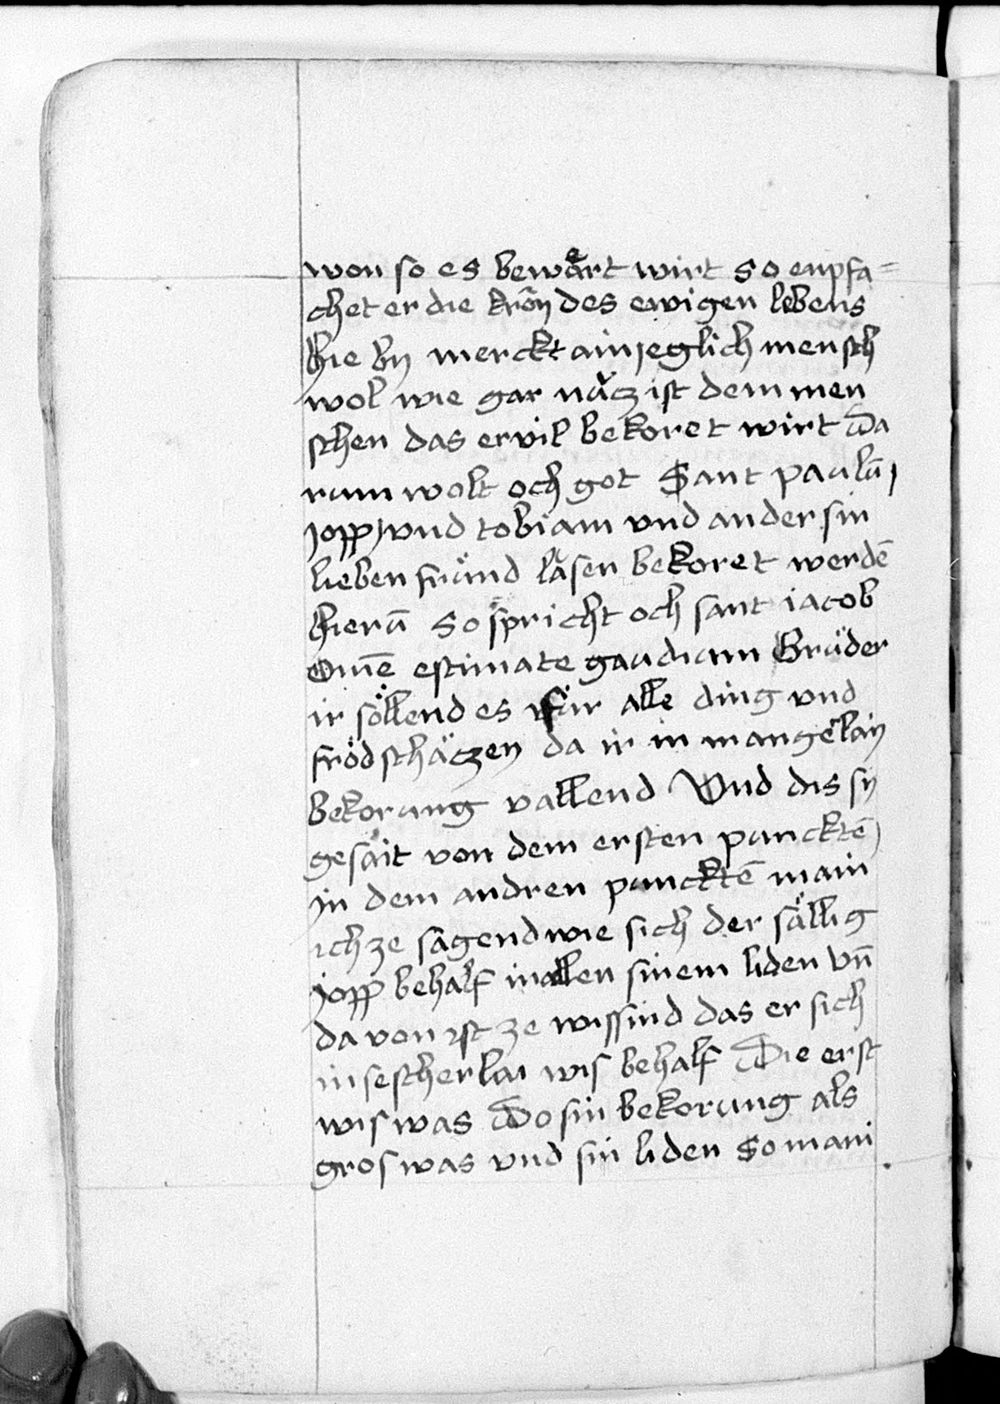 won so es bewaͤrt wirt So enpfa=
chet er die krōn des ewigen lebens
Hie by merckt ain jeglich mensch
wol wie gar nücz ist dem men
schen das er vil bekoret wirt Da
rum wolt och got Sant paulū
jopp vnd tobiam vnd ander sin
lieben fründ läsen bekoret werdē
Hierū So spricht och sant iacob
Omē estimate gaudium Brüder
ir söllend es für alle ding vnd
fröd schäczen da ir in mangelay
bekorung vallend Vnd dis sy
gesait von dem ersten punktē
jn dem andren puncktē main
ich ze sagend wie sich der sällig
jopp behalf in allen sinem liden vn̄
da von ist ze wissind das er sich
in sescherlai wis behalf Die erst
wis was Do sin bekorung als
gros was vnd sin liden So mani